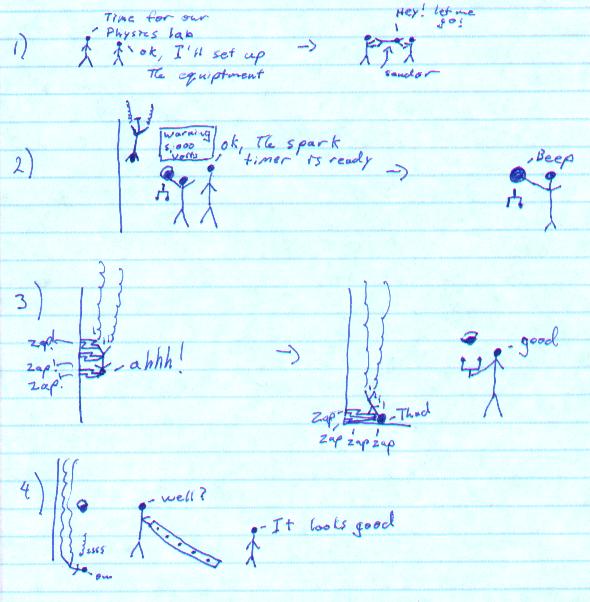 1)
Time for our
Physics lab
ok, I'll set up
the equiptment
Hey! let me
go!
sandor
2)
warning
5,000
volts
ok, the spark
timer is ready
Beep
3)
zap!
zap!
zap!
ahhh!
Zap
zap zap zap
Thud
good
4)
well?
It looks good
ssss
ow